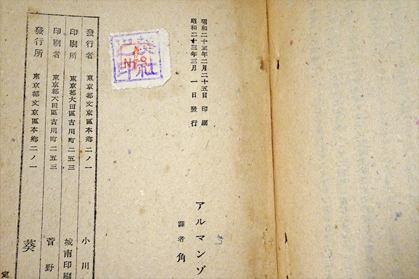 昭和二十三年二月二十五日 印刷
昭和二十三年三月一日 發行
アルマンゾ
譯者 角
發行者 東京都文京區本郷二ノ一 小川
印刷所 東京都大田區古川町二五三 城南印刷
印刷者 東京都大田區古川町二五三 菅野
發行所 東京都文京區本郷二ノ一 葵